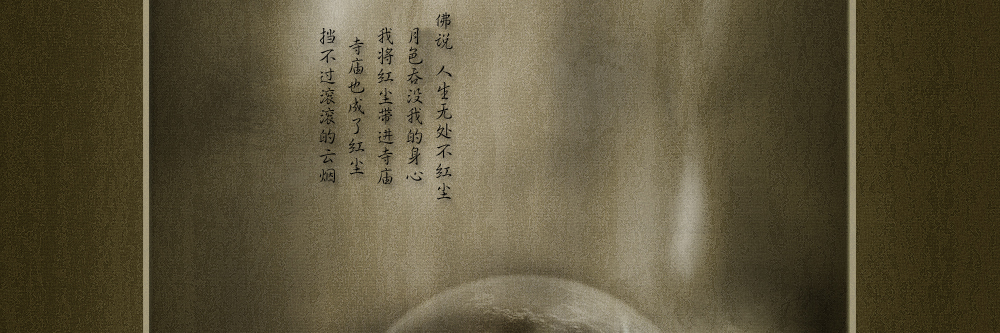 佛说 人生无处不红尘
月色吞没我的身心
我将红尘带进寺庙
寺庙也成了红尘
挡不过滚滚的云烟